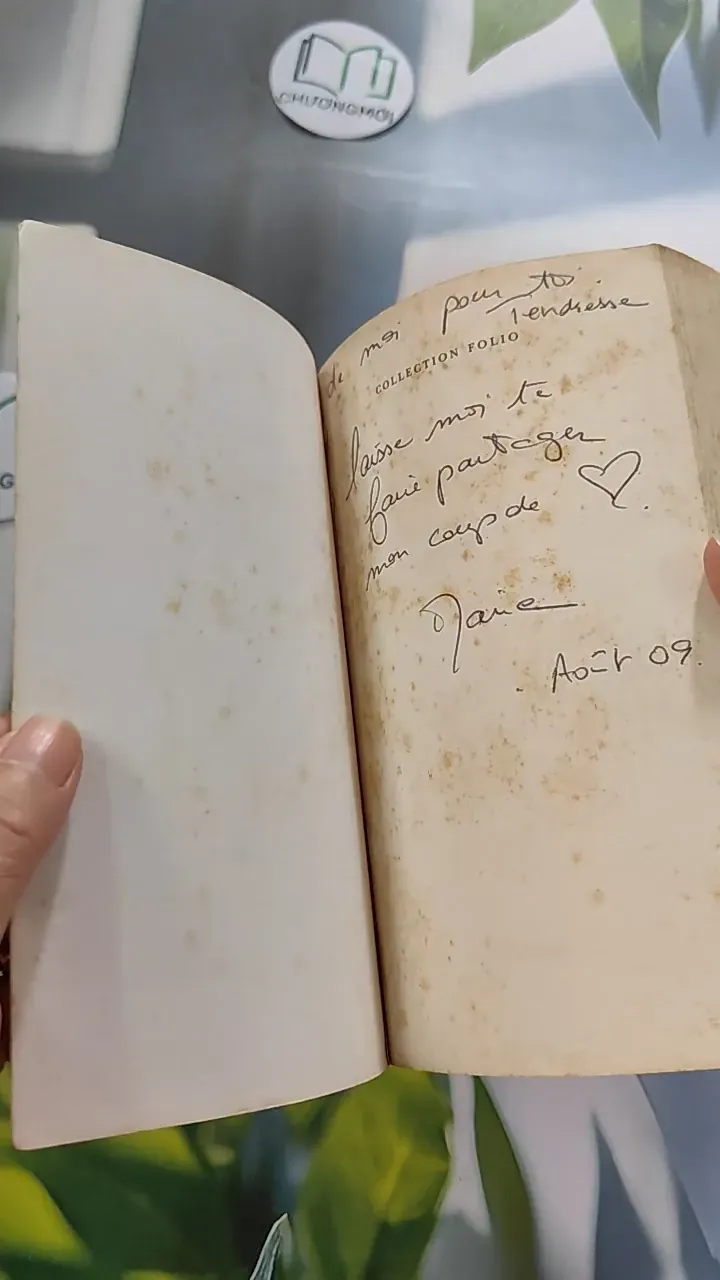 CHƯƠNGMỚI
de moi pour toi
Tendresse
COLLECTION FOLIO
laisse moi te
faire partager
mon coup de ♡.
Marie
Août 09.
G